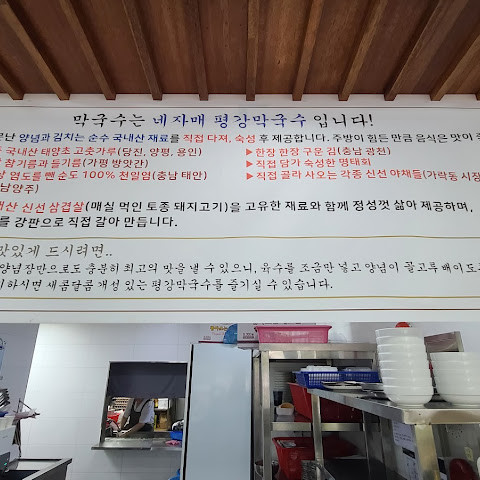 막국수는 네자매 평강막국수 입니다!
양념과 김치는 순수 국내산 재료를 직접 다져, 숙성 후 제공합니다. 주방이 힘든 만큼 음식은 맛이
국내산 태양초 고춧가루(당진, 양평, 용인)
▶한장 한장 구운 김(충남 광천)
참기름과 들기름(가평 방앗간)
▶직접 담가 숙성한 명태회
염도를 뺀 순도 100% 천일염(충남 태안)
▶직접 골라 사오는 각종 신선 야채들(가락동 시장
남양주)
신선 삼겹살(매실 먹인 토종 돼지고기)을 고유한 재료와 함께 정성껏 삶아 제공하며,
를 강판으로 직접 갈아 만듭니다.
맛있게 드시려면..
양념장만으로도 충분히 최고의 맛을 낼 수 있으니, 육수를 조금만 넣고 양념이 골고루 배이도록
하시면 새콤달콤 개성 있는 평강막국수를 즐기실 수 있습니다.